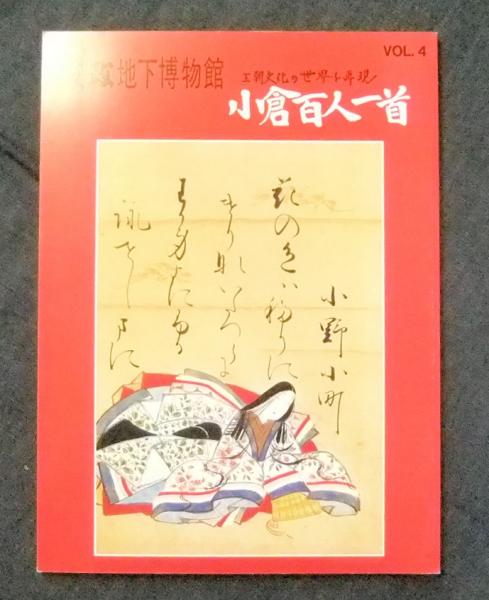 VOL. 4
地下博物館
王朝文化の世界を再現!
小倉百人一首
小野小町
花の色は移りに
けりないたつらに
わか身よにふる
詠せしまに